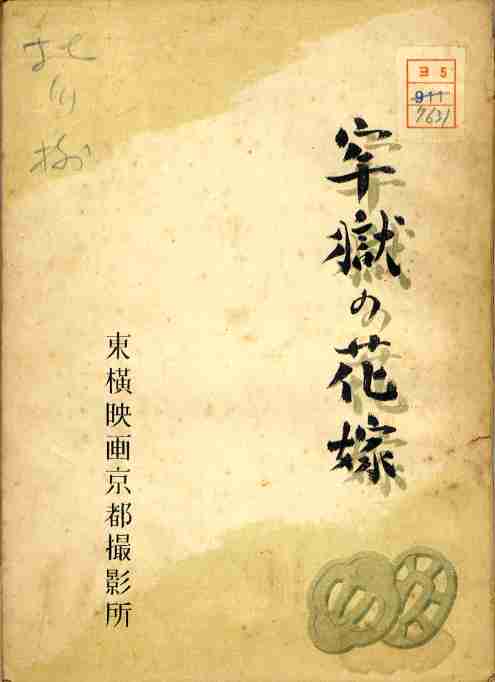 牢獄の花嫁
東横映画京都撮影所
ヨ 5
911
7631